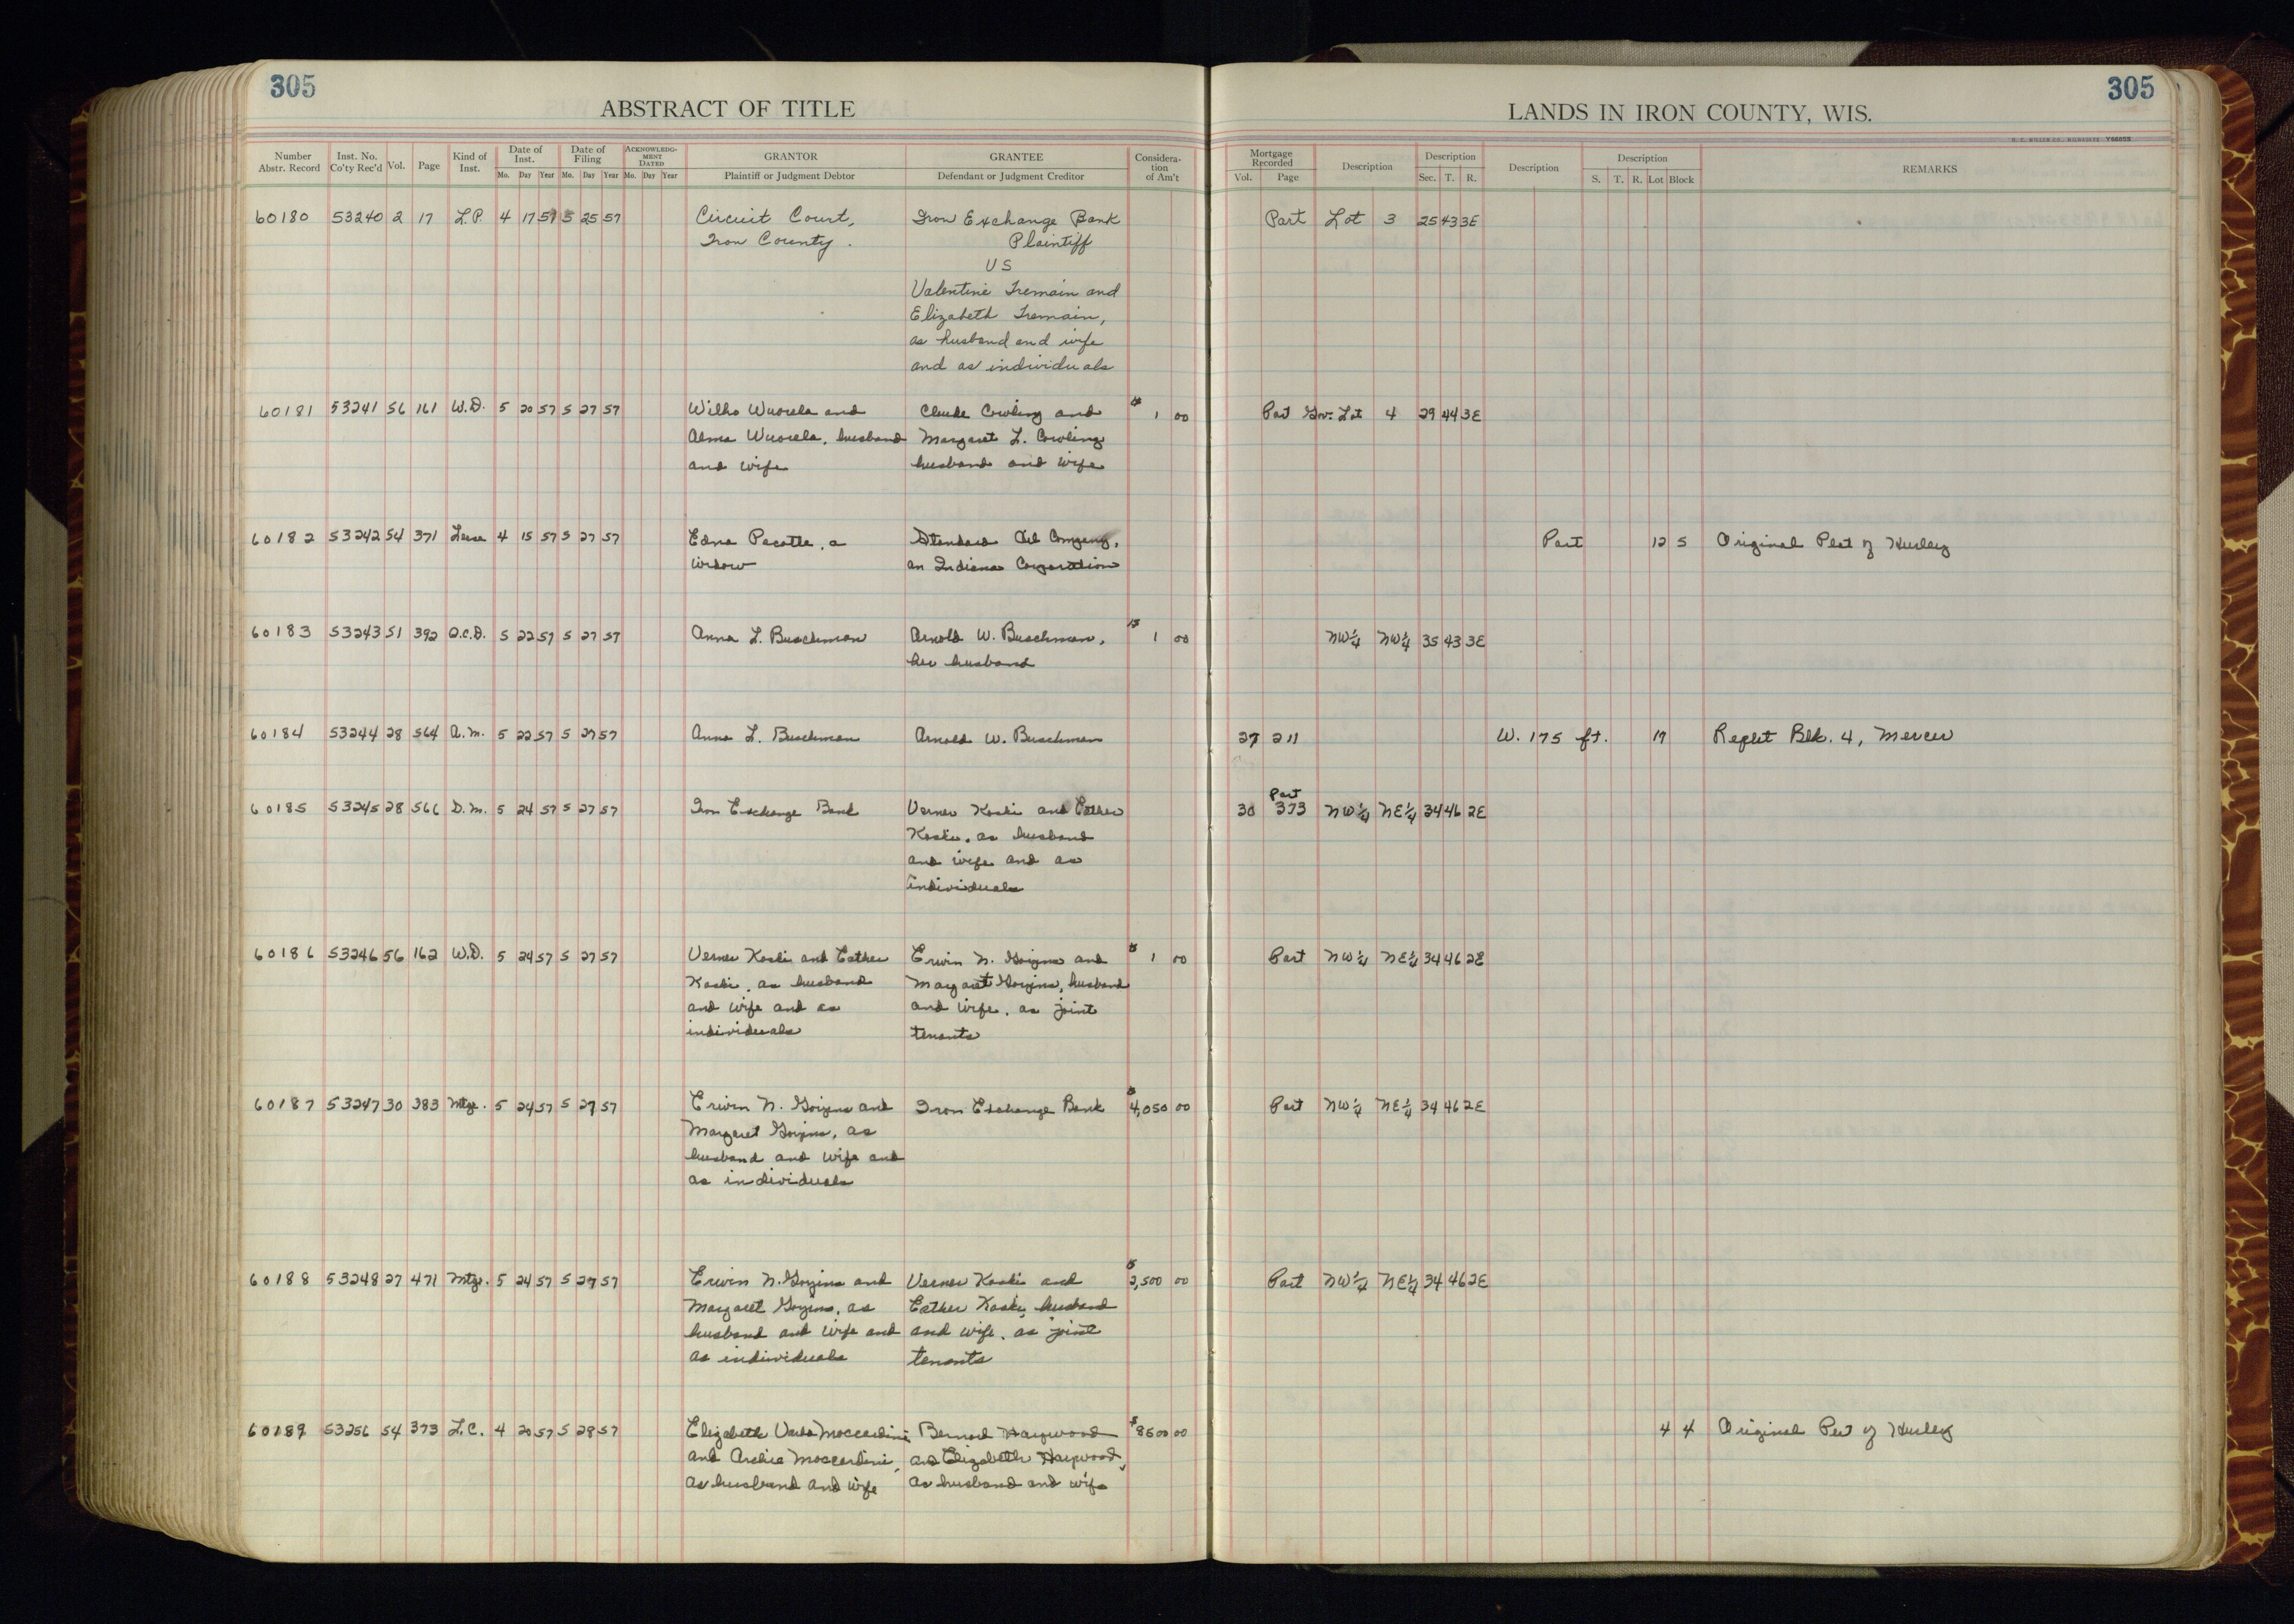 305
305
ABSTRACT OF TITLE
LANDS IN IRON COUNTY, WIS.
Number Abstr. Record
Inst. No. Co'ty Rec'd
Vol.
Page
Kind of Inst.
Date of Inst.
Mo. Day Year
Date of Filing
Mo. Day Year
ACKNOWLEDGMENT DATED
Mo. Day Year
GRANTOR
Plaintiff or Judgment Debtor
GRANTEE
Defendant or Judgment Creditor
Consideration of Am't
Mortgage Recorded
Vol. Page
Description
Description
Sec. T. R.
Description
Description
S. T. R. Lot Block
REMARKS
60180 53240 2 17 L.P. 4 17 57 5 25 57 Circuit Court, Iron Exchange Bank Part Lot 3 25 43 3E
Iron County. Plaintiff
VS
Valentine Tremain and
Elizabeth Tremain,
as husband and wife
and as individuals
60181 53241 56 161 W.D. 5 20 57 5 27 57 Wilho Wuorela and Claude Cowling and $ 1 00 Part Gov. Lot 4 29 44 3E
Alma Wuorela, husband Margaret L. Cowling
and wife husband and wife
60182 53242 54 371 Lease 4 15 57 5 27 57 Edna Pacotte, a Standard Oil Company, Part 12 5 Original Plat of Hurley
widow an Indiana Corporation
60183 53243 51 392 Q.C.D. 5 22 57 5 27 57 Anna L. Buschman Arnold W. Buschman, $ 1 00 NW¼ NW¼ 35 43 3E
her husband
60184 53244 28 564 A.M. 5 22 57 5 27 57 Anna L. Buschman Arnold W. Buschman 27 211 W. 175 ft. 19 Replat Blk. 4, Mercer
Part
60185 53245 28 566 D.M. 5 24 57 5 27 57 Iron Exchange Bank Verner Koski and Esther 30 373 NW¼ NE¼ 34 46 2E
Koski, as husband
and wife and as
individuals
60186 53246 56 162 W.D. 5 24 57 5 27 57 Verner Koski and Esther Erwin N. and $ 1 00 Part NW¼ NE¼ 34 46 2E
Koski, as husband Margaret husband
and wife and as and wife, as joint
individuals tenants
60187 53247 30 383 Mtge. 5 24 57 5 27 57 Erwin N. and Iron Exchange Bank $ 4,050 00 Part NW¼ NE¼ 34 46 2E
Margaret as
husband and wife and
as individuals
60188 53248 27 471 Mtge. 5 24 57 5 27 57 Erwin N. and Verner Koski and $ 2,500 00 Part NW¼ NE¼ 34 46 2E
Margaret as Esther Koski, husband
husband and wife and and wife, as joint
as individuals tenants
60189 53256 54 373 L.C. 4 20 57 5 28 57 Elizabeth Moccardini Bernard Haywood $ 8500 00 4 4 Original Plat of Hurley
and Archie Moccardini, and Elizabeth Haywood,
as husband and wife as husband and wife